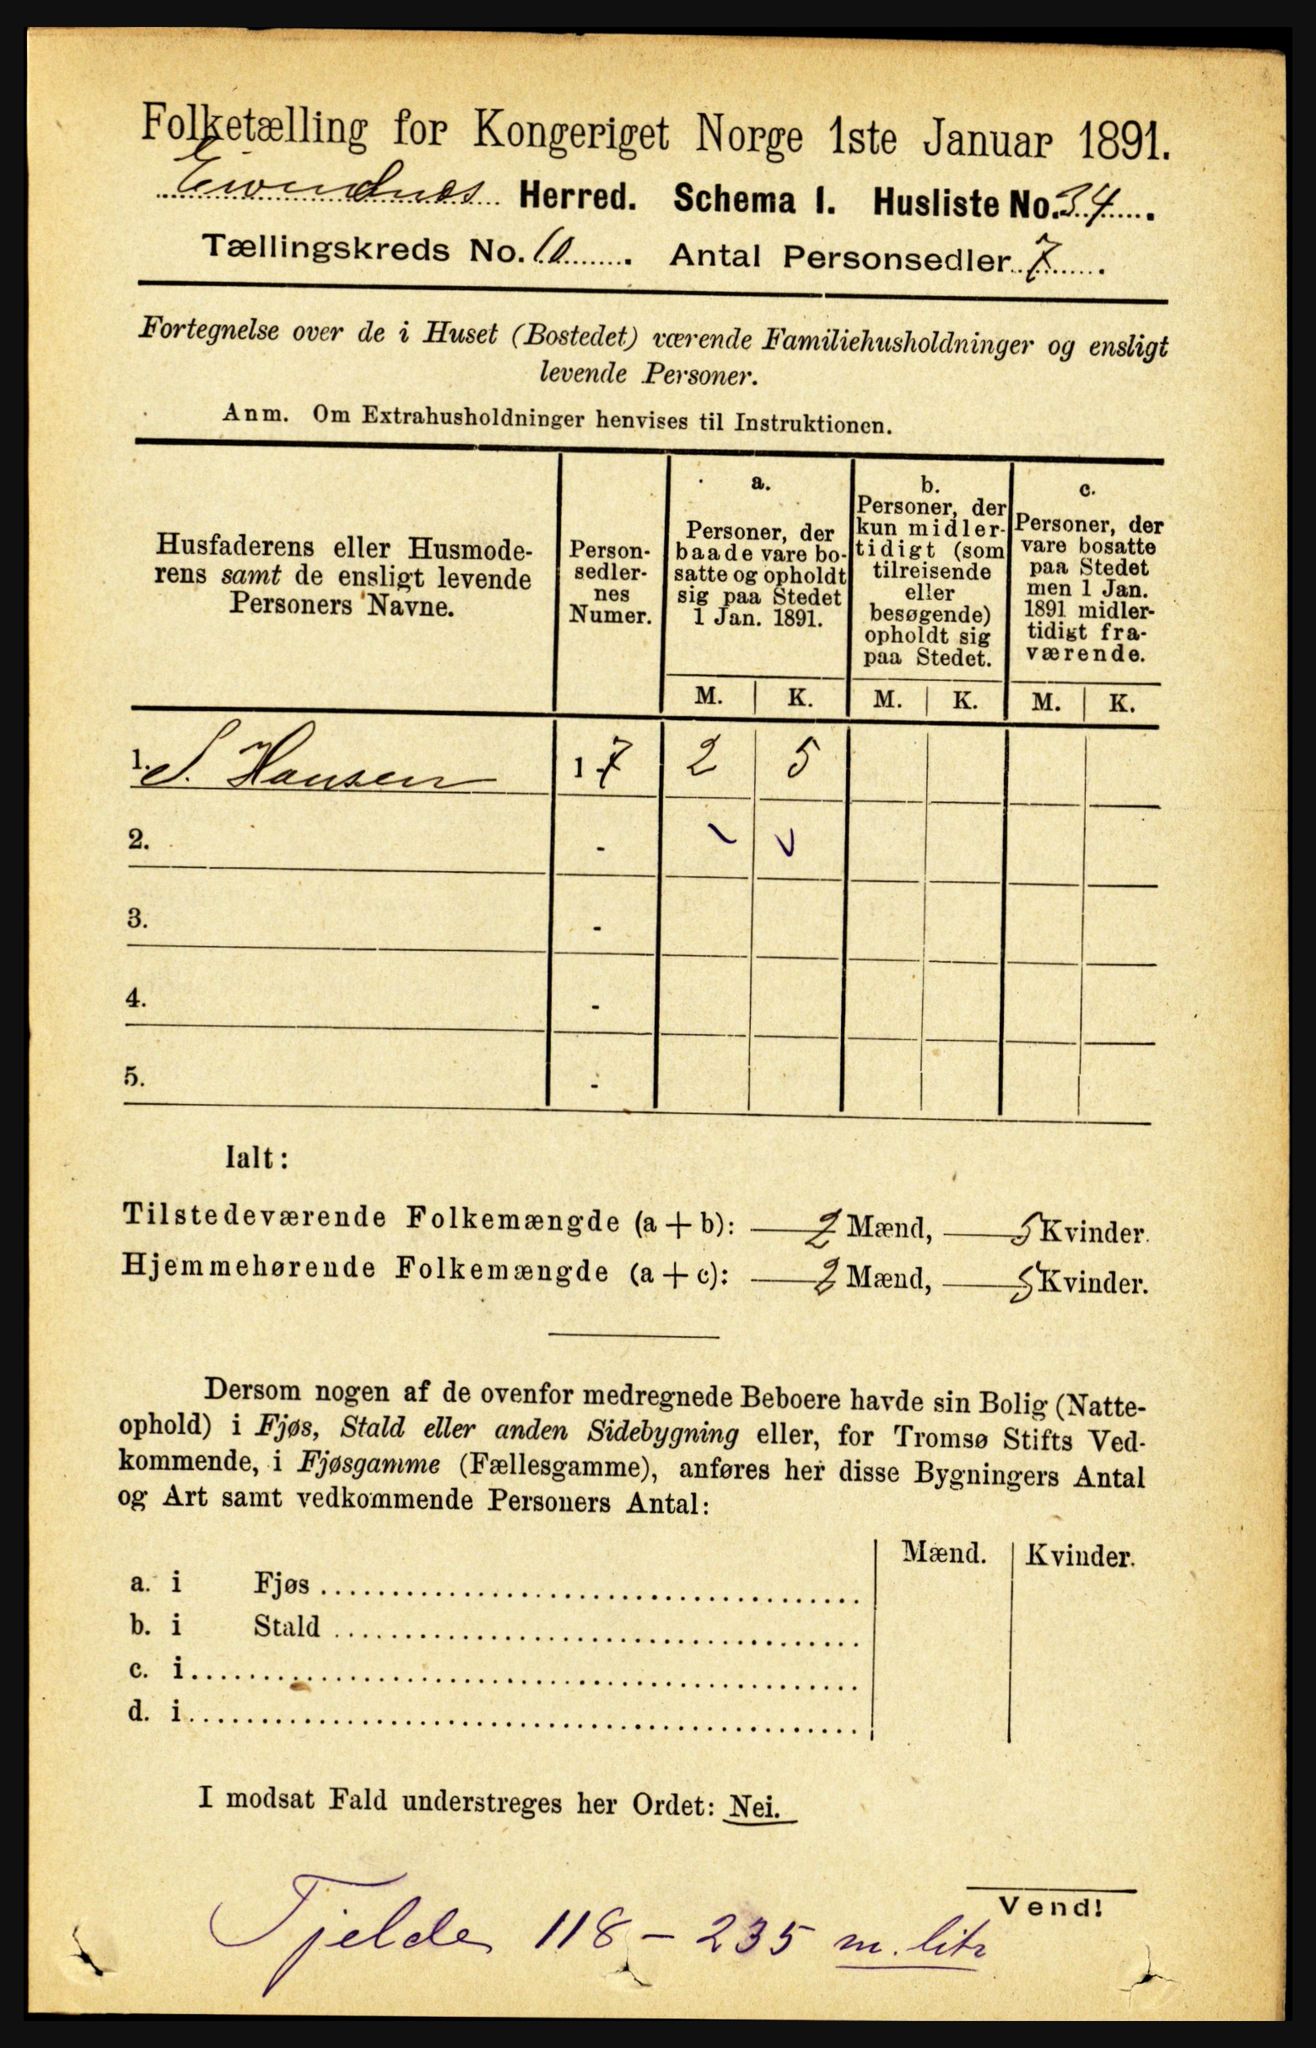 Folketælling for Kongeriget Norge 1ste Januar 1891.
Evendnes Herred. Schema I. Husliste No. 34.
Tællingskreds No. 10. Antal Personsedler 7.
Fortegnelse over de i Huset (Bostedet) værende Familiehusholdninger og ensligt
levende Personer.
Anm. Om Extrahusholdninger henvises til Instruktionen.
Husfaderens eller Husmode-
rens samt de ensligt levende
Personers Navne.
Person-
sedler-
nes
Numer.
a.
Personer, der
baade vare bo-
satte og opholdt
sig paa Stedet
1 Jan. 1891.
b.
Personer, der
kun midler-
tidigt (som
tilreisende
eller
besøgende)
opholdt sig
paa Stedet.
c.
Personer, der
vare bosatte
paa Stedet
men 1 Jan.
1891 midler-
tidigt fra-
værende.
M. K. M. K. M. K.
1. S. Hansen 1-7 2 5
2. -
3. -
4. -
5. -
Ialt:
Tilstedeværende Folkemængde (a + b): 2 Mænd, 5 Kvinder.
Hjemmehørende Folkemængde (a + c): 2 Mænd, 5 Kvinder.
Dersom nogen af de ovenfor medregnede Beboere havde sin Bolig (Natte-
ophold) i Fjøs, Stald eller anden Sidebygning eller, for Tromsø Stifts Ved-
kommende, i Fjøsgamme (Fællesgamme), anføres her disse Bygningers Antal
og Art samt vedkommende Personers Antal:
Mænd. Kvinder.
a. i Fjøs
b. i Stald
c. i
d. i
I modsat Fald understreges her Ordet: Nei.
Vend!
Tjelde 118 - 235 m. litr